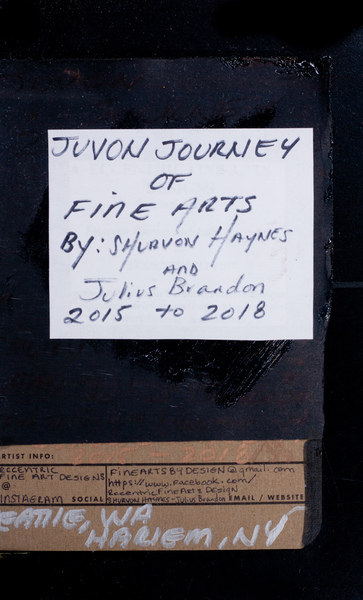 JUVON JOURNEY
OF
FINE ARTS
BY: SHURVON HAYNES
AND
Julius Brandon
2015 to 2018
ARTIST INFO: 2015 - 2018
ECCENTRIC
FINE ART DESIGNS
@
INSTAGRAM SOCIAL
FINEARTSBYDESIGN@gmail.com
https://www.facebook.com/
EccentricFineArtsDesign
SHURVON HAYNES - Julius Brandon EMAIL / WEBSITE
EATTLE, WA
HARLEM, NY